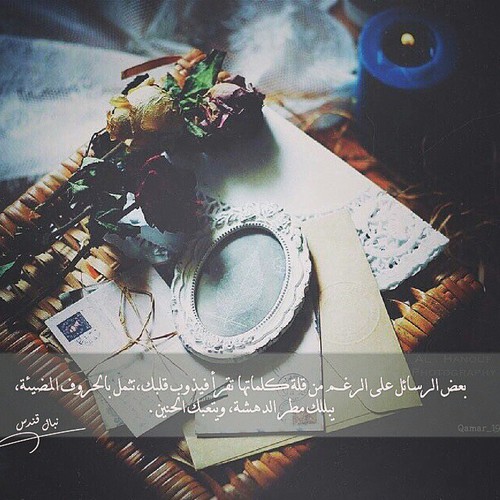 بعض الرسائل على الرغم من قلة كلماتها تقرأ فيذوب قلبك، تثمل بالحروف المضيئة،
يبللك مطر الدهشة، ويتعبك الحنين .
نبال قندس
PHOTOGRAPHY
Qamar_19